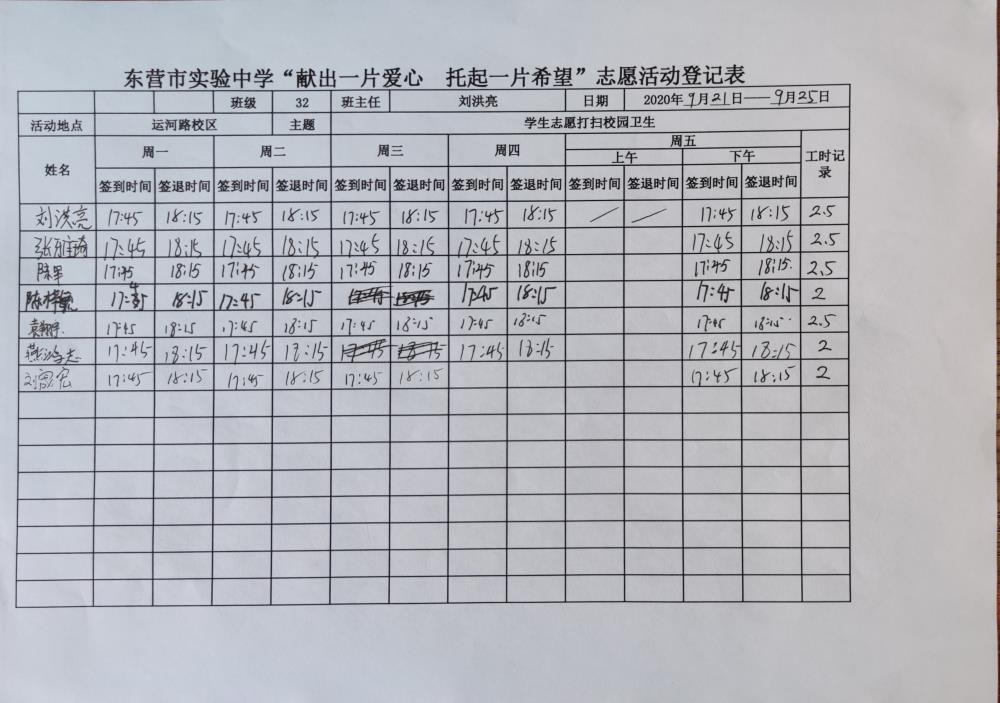 东营市实验中学“献出一片爱心 托起一片希望”志愿活动登记表
班级 32 班主任 刘洪亮 日期 2020年9月21日——9月25日
活动地点 运河路校区 主题 学生志愿打扫校园卫生
姓名 周一 周二 周三 周四 周五 工时记录
上午 下午
签到时间 签退时间 签到时间 签退时间 签到时间 签退时间 签到时间 签退时间 签到时间 签退时间 签到时间 签退时间
刘洪亮 17:45 18:15 17:45 18:15 17:45 18:15 17:45 18:15 / / 17:45 18:15 2.5
17:45 18:15 17:45 18:15 17:45 18:15 17:45 18:15 17:45 18:15 2.5
17:45 18:15 17:45 18:15 17:45 18:15 17:45 18:15 17:45 18:15. 2.5
17:45 18:15 17:45 18:15 17:45 18:15 17:45 18:15 2
17:45 18:15 17:45 18:15 17:45 18:15 17:45 18:15 17:45 18:15 2.5
17:45 18:15 17:45 18:15 17:45 18:15 17:45 18:15 2
17:45 18:15 17:45 18:15 17:45 18:15 17:45 18:15 2